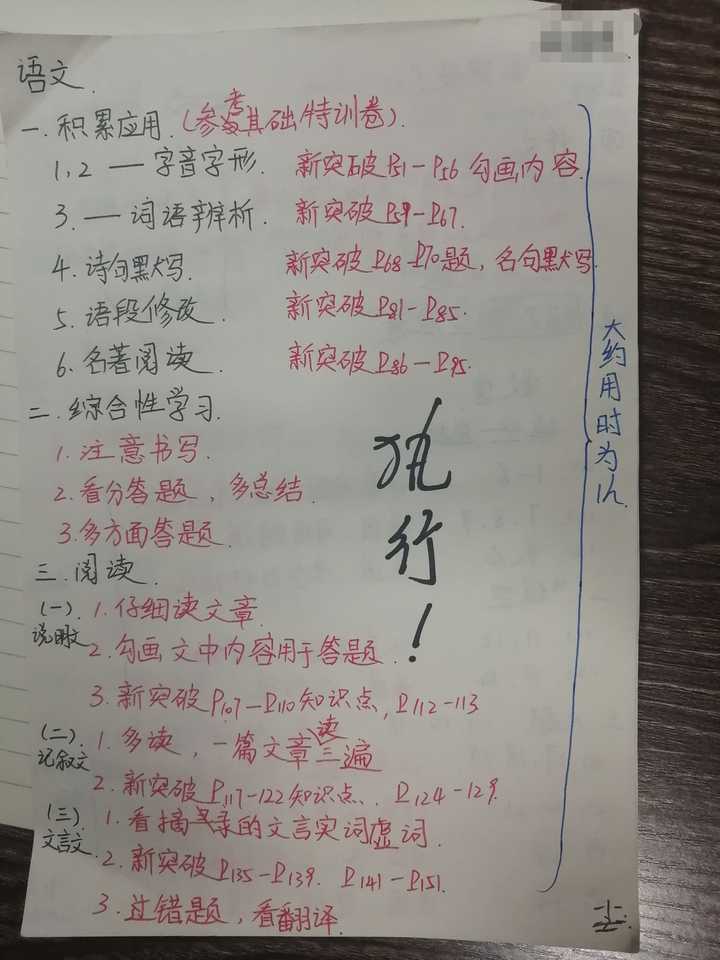 语文.
一.积累应用.(参考其础特训卷).
1,2 — 字音字形. 新突破P51-P56勾画内容.
3. — 词语辨析. 新突破P59-P67.
4. 诗句默写. 新突破P68-P70题,名句默写.
5. 语段修改. 新突破P81-P85.
6. 名著阅读. 新突破P86-P95.
二.综合性学习.
1.注意书写.
2.看分答题,多总结.
3.多方面答题.
三.阅读.
(一).说明文
1.仔细读文章.
2.勾画文中内容用于答题.
3.新突破P107-P110知识点,P112-113
(二).记叙文
1.多读,一篇文章读三遍
2.新突破P117-122知识点. P124-129.
(三).文言文.
1.看摘录的文言实词虚词.
2.新突破P135-P139. P141-P151.
3.过错题,看翻译.
执行!
大约用时为1h.